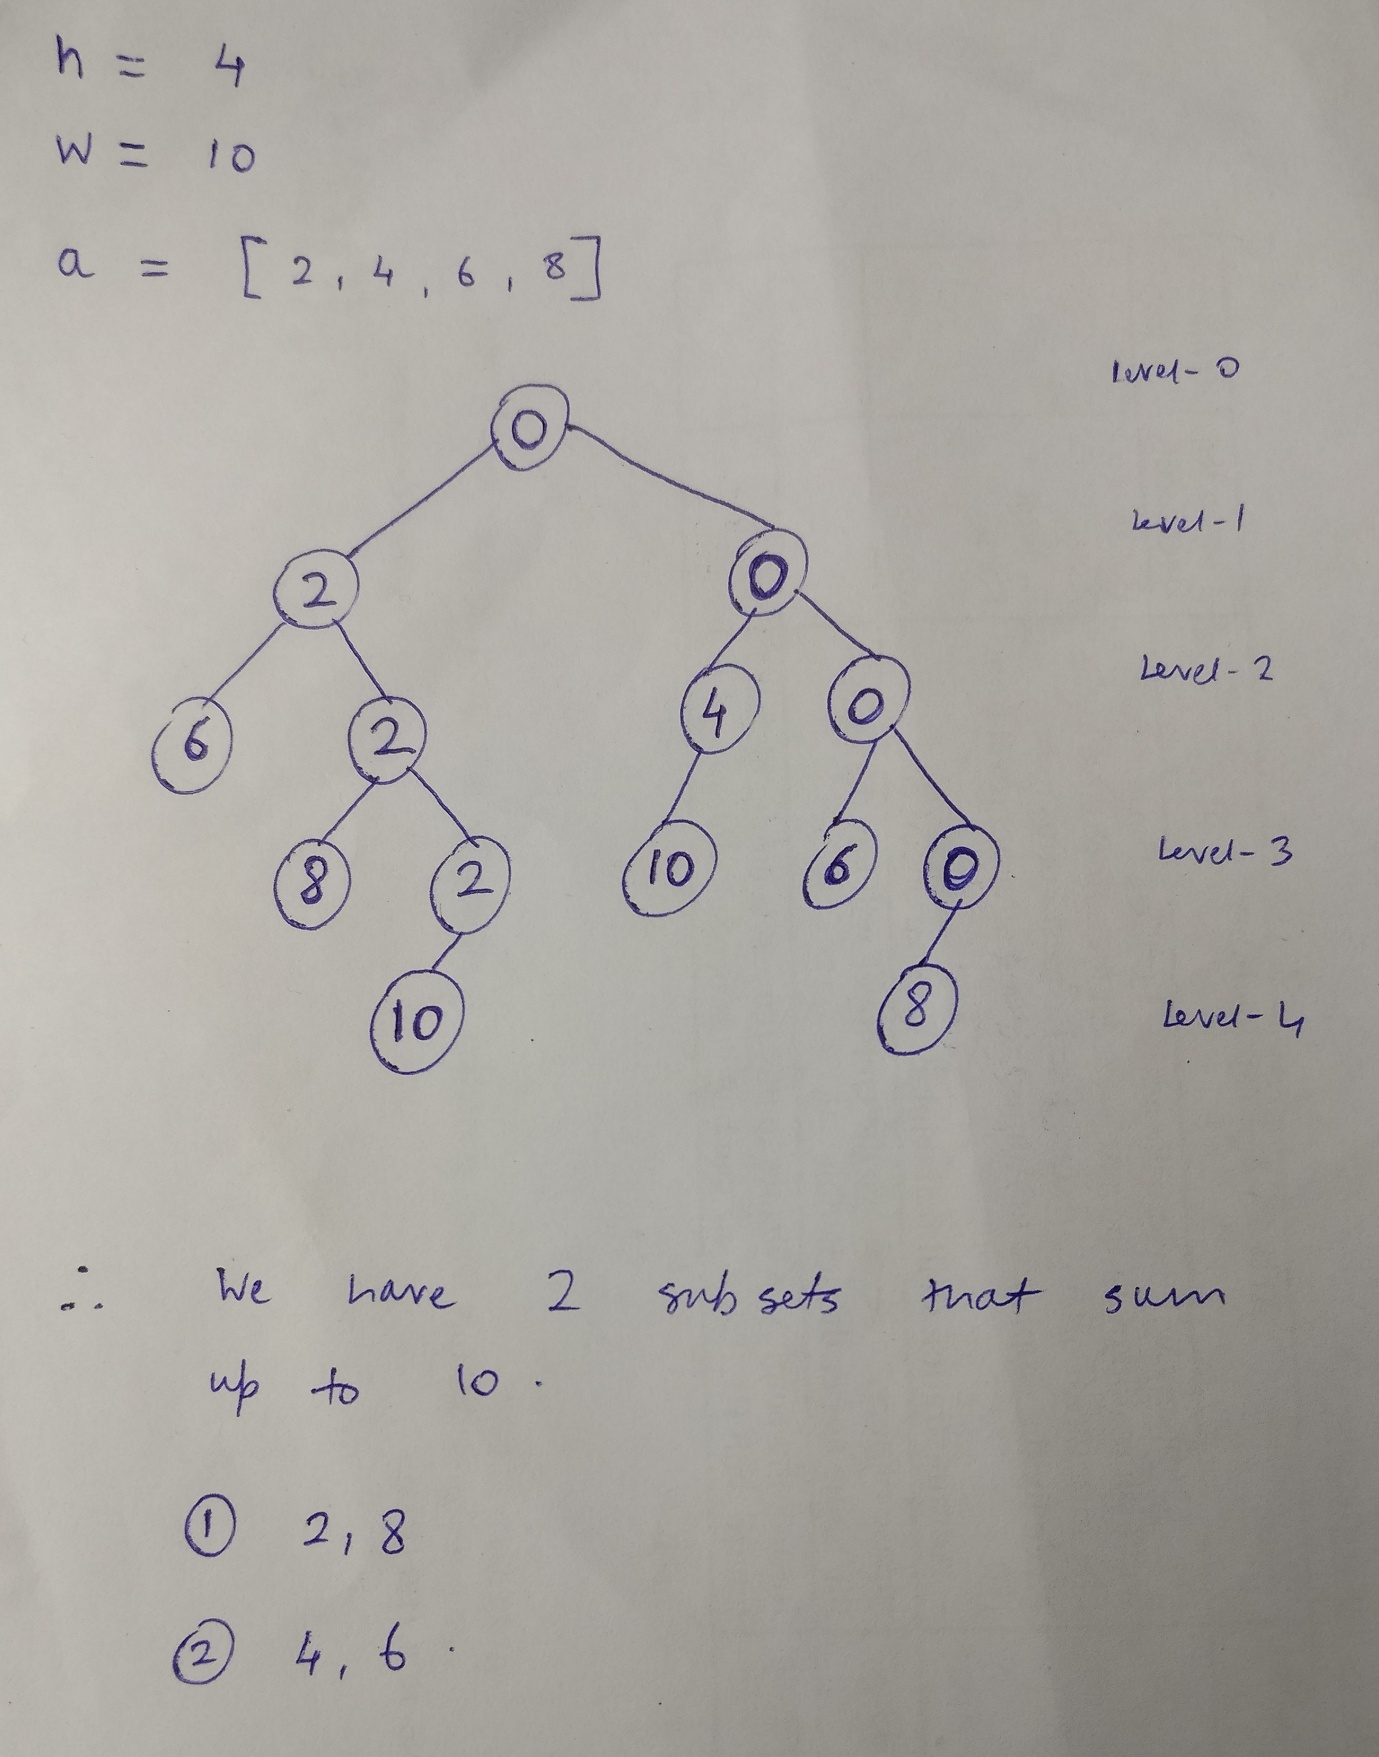 n = 4
W = 10
a = [2, 4, 6, 8]
Level-0
0
Level-1
2 0
Level-2
6 2 4 0
Level-3
8 2 10 6 0
Level-4
10 8
∴ We have 2 subsets that sum
up to 10.
① 2, 8
② 4, 6.